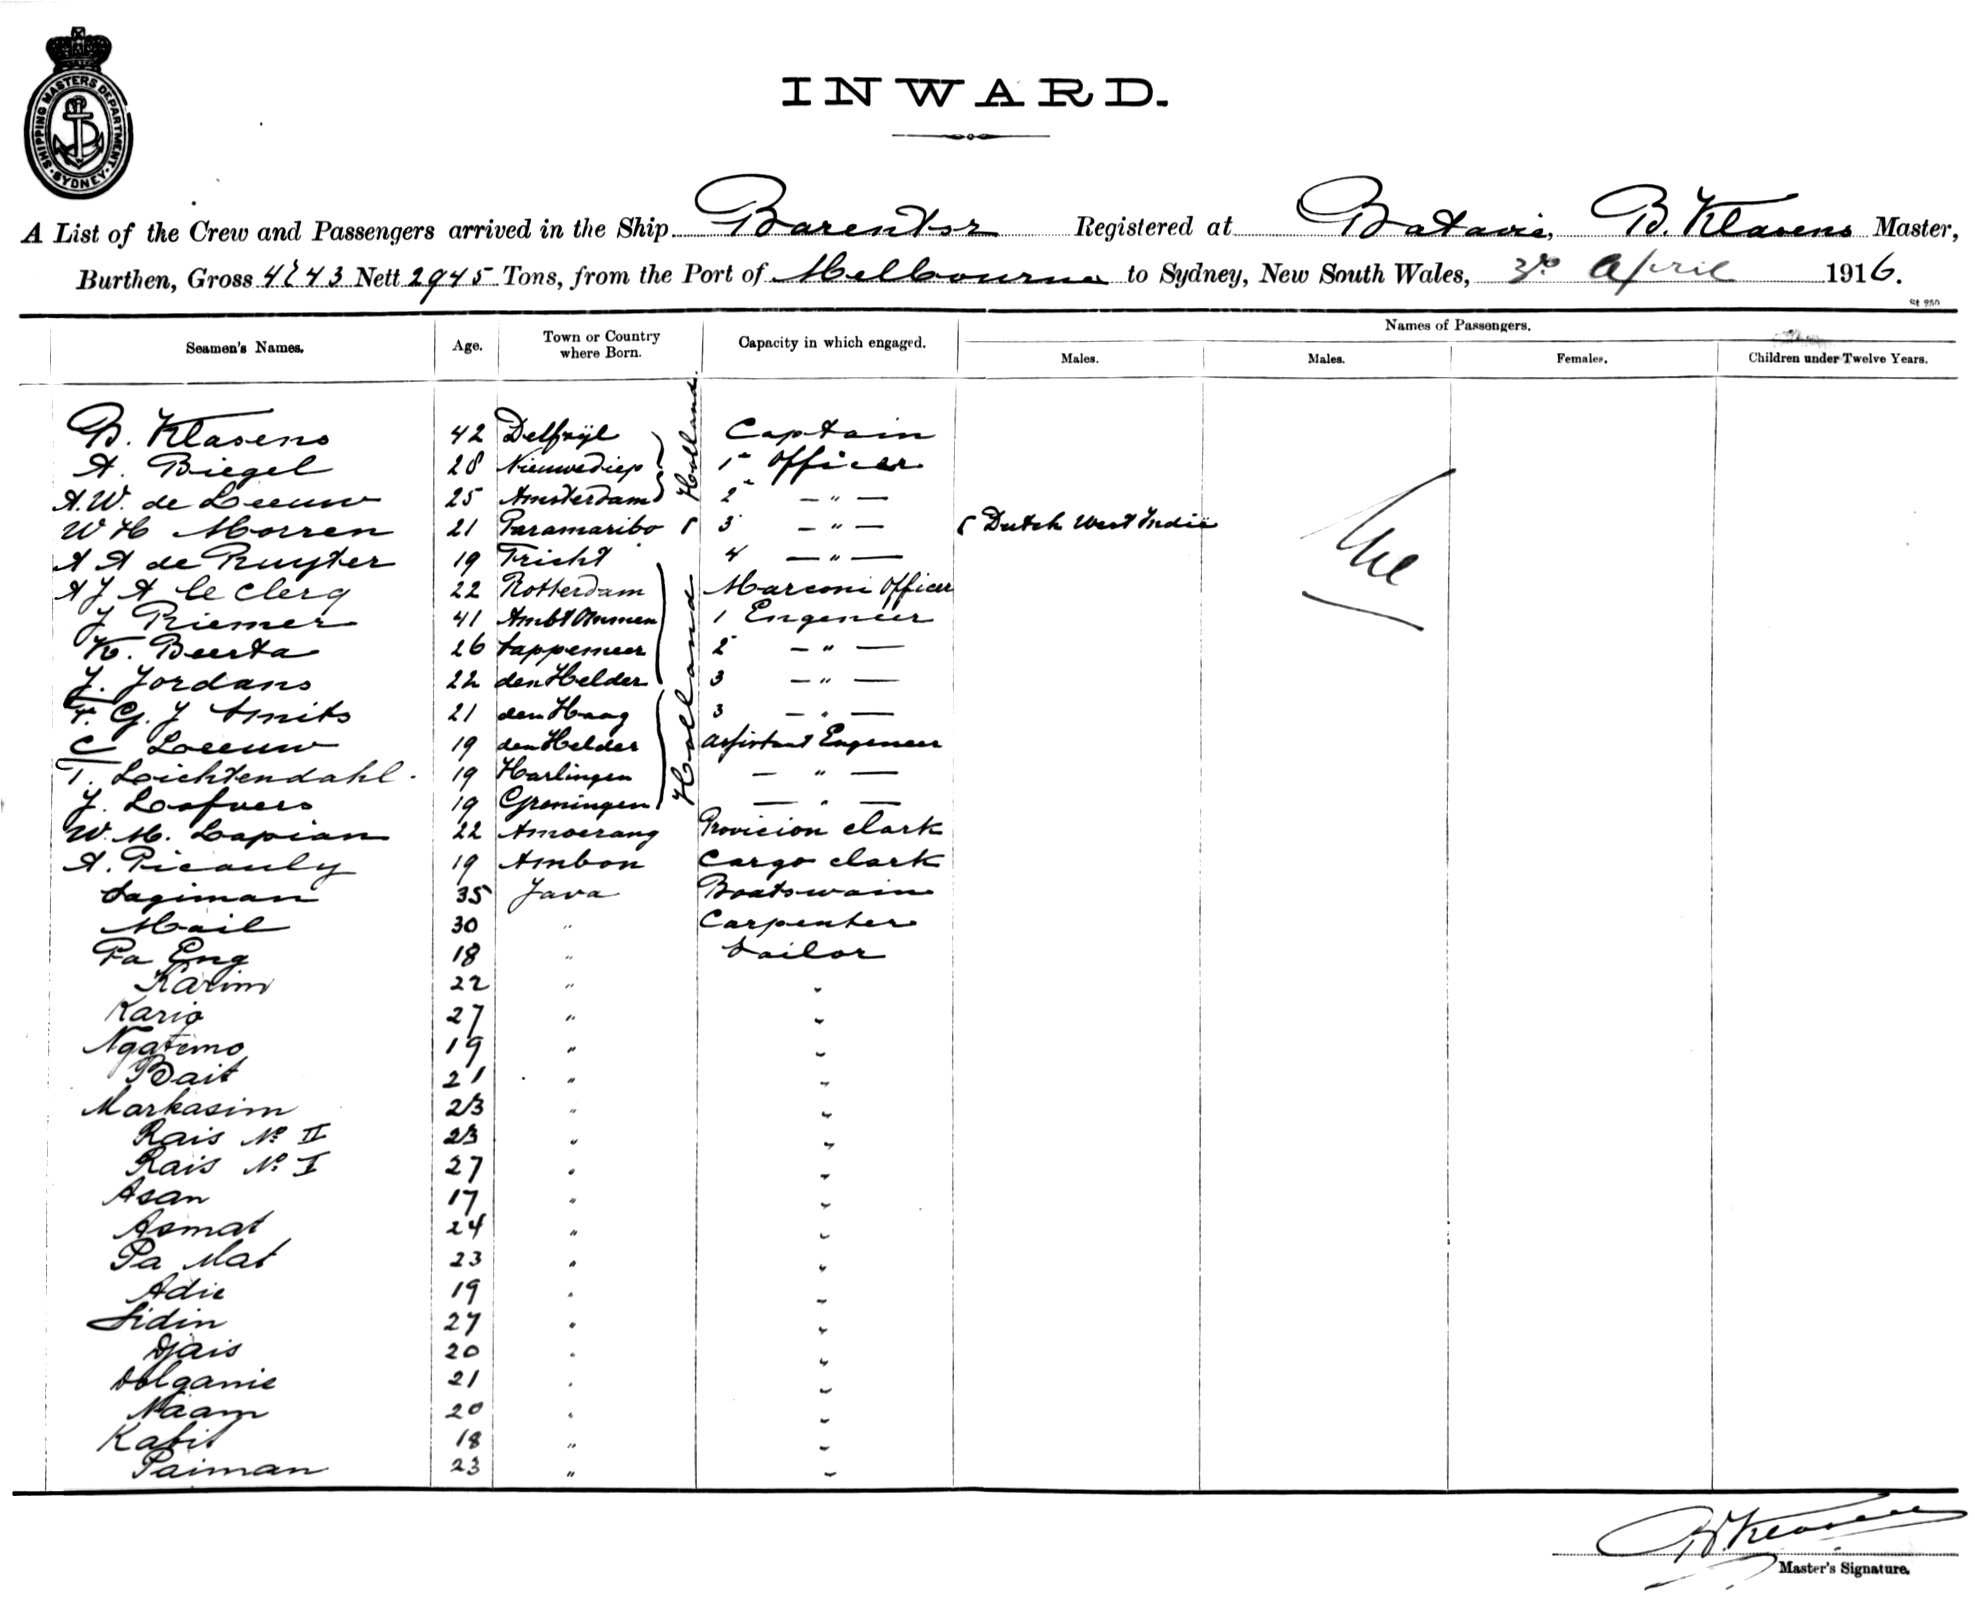 SHIPPING MASTERS DEPARTMENT · SYDNEY ·
INWARD.
A List of the Crew and Passengers arrived in the Ship Barentsz Registered at Batavia, B. Klasens Master,
Burthen, Gross 4243 Nett 2945 Tons, from the Port of Melbourne to Sydney, New South Wales, 3rd April 1916.
St 250
Seamen's Names. Age. Town or Country where Born. Capacity in which engaged. Names of Passengers.
Males. Males. Females. Children under Twelve Years.
B. Klasens 42 Delfzyl Captain
A. Biegel 28 Nieuwediep Holland. 1e Officer
A. W. de Leeuw 25 Amsterdam 2e — " —
W H Morren 21 Paramaribo 3 — " — Dutch West Indië
A A de Ruyter 19 Tricht 4 — " —
A J A le Clerq 22 Rotterdam Marconi Officer
J Riemer 41 Ambt Ommen 1 Engeneer
K. Beerta 26 Sappemeer Holland 2 — " —
J. Jordans 22 den Helder 3 — " —
F. G. J Smits 21 den Haag 3 — " —
C Leeuw 19 den Helder Assistant Engeneer
T. Lichtendahl 19 Harlingen — " —
J. Lofvers 19 Groningen — " —
W. M. Lapian 22 Amoerang Provision clark
A. Picauly 19 Ambon Cargo clark
Sagiman 35 Java Boatswain
Mail 30 " Carpenter
Pa Eng 18 " Sailor
Karim 22 " "
Kario 27 " "
Ngatemo 19 " "
Bait 21 " "
Markasim 23 " "
Rais No II 23 " "
Rais No I 27 " "
Asan 17 " "
Asmat 24 " "
Pa Mat 23 " "
Adie 19 " "
Sidin 27 " "
Djais 20 " "
Dolganie 21 " "
Naam 20 " "
Kabit 18 " "
Paiman 23 " "
B. Klasens
Master's Signature.